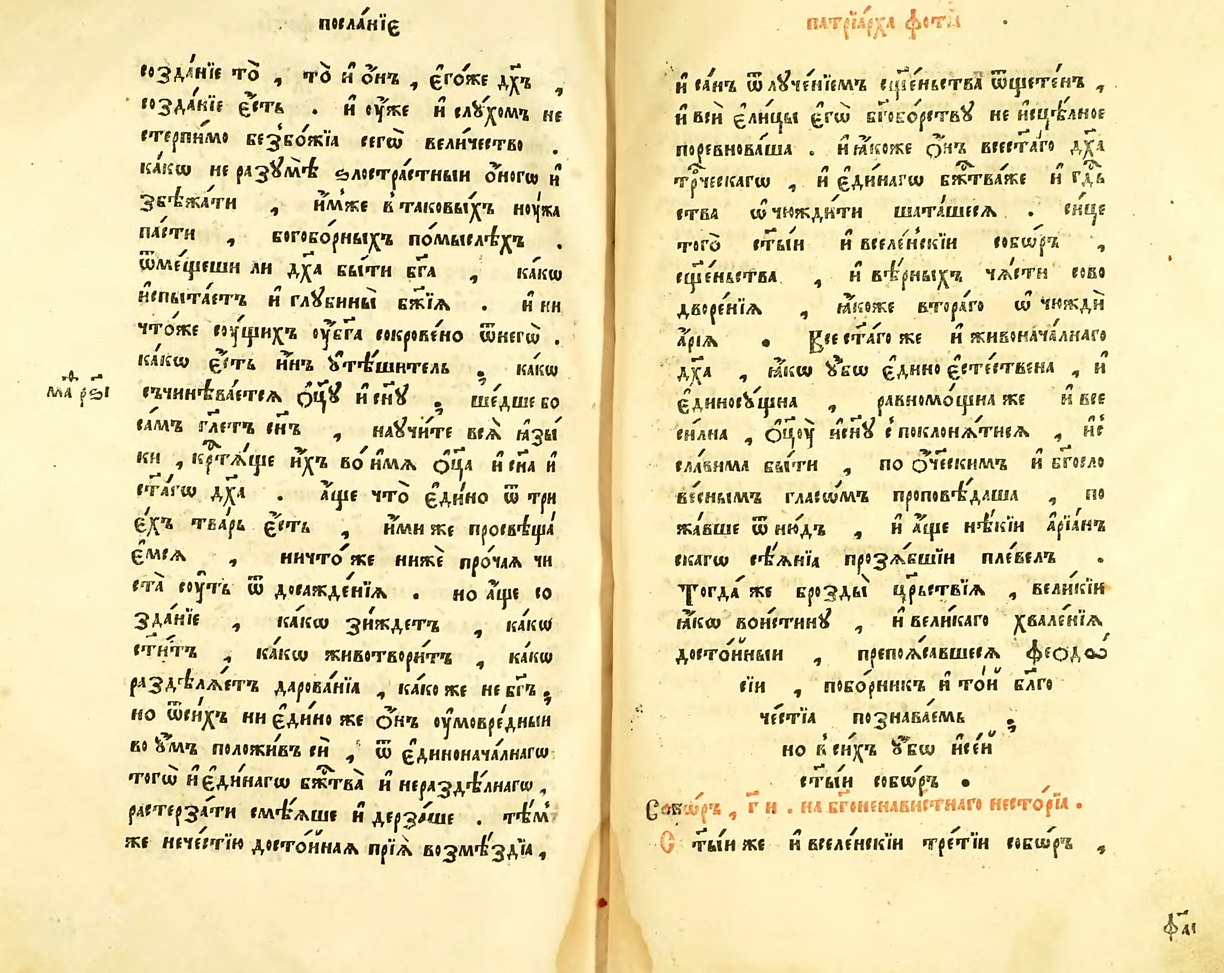 посла́нїє
созда́нїе то̀ , то̀ и҆ о҆́нъ , є҆го́же дх҃ъ ,
созда́нїе є҆́сть . и҆ оу҆́же и҆ слꙋ́хомъ не
стерпи́мо безбо́жїа сегѡ̀ вели́чество .
ка́кѡ не разꙋмѣ̀ ѕлостра́стныи о҆́ногѡ и҆
збѣжа́ти , и҆́мже в таковы́хъ ноу́жа
па́сти , богобо́рныхъ по́мыслѣхъ .
ѿме́щеши ли дх҃а бы́ти бг҃а , ка́кѡ
и҆спыта́етъ и҆ глꙋбины̀ бж҃їѧ . и҆ ни
что́же соу́щихъ оу҆бг҃а сокрове́но ѿнегѡ̀ .
ка́кѡ є҆́сть и҆́нъ ᲂу҆тѣ́шитель ; ка́кѡ
съчинѣва́етсѧ ѻ҆ц҃ꙋ и҆ сн҃ꙋ ; ше́дше бо
са́мъ гл҃етъ сн҃ъ , наꙋчи́те всѧ̀ ꙗ҆зы́
ки , крⷭ҇тѧ́ще и҆́хъ во и҆́мѧ ѻ҆ц҃а и҆ сн҃а и҆
ст҃а́гѡ дх҃а . а҆́ще что̀ є҆ди́но ѿ три
є҆́хъ тва́рь є҆́сть , и҆́ми же просвѣща́
є҆мсѧ , ничто́ же нижѐ про́чаѧ чи
ста̀ соу́ть ѿ досажде́нїѧ . но а҆́ще со
зда́нїе , ка́кѡ зи́ждетъ , ка́кѡ
ст҃и́тъ , ка́кѡ животвори́тъ , ка́кѡ
раздѣлѧ́етъ дарова́нїа , ка́ко же не бг҃ъ ;
но ѿси́хъ ни є҆ди́но же ѻ҆́нъ оу҆мовре́дныи
во ᲂу҆́мъ положи́въ сѝ , ѿ є҆динонача́лнагѡ
тогѡ̀ и҆ є҆ди́нагѡ бжⷭ҇тва̀ и҆ нераздѣ́лнагѡ ,
растерза́ти смѣ́ѧше и҆ дерза́ше . тѣ́м
же нече́стїю досто́йнаѧ прїѧ̀ возмѣ́здїа ,
ма рѕ҃і
патрїа́рха фо́тїа
и҆ са́нъ ѿлꙋче́нїемъ сщ҃е́ньства ѿщете́нъ ,
и҆ всѝ є҆ли́цы є҆гѡ̀ бг҃обо́рствꙋ не и҆сцѣ́лное
поревнова́ша . и҆ ꙗ҆́коже ѻ҆́нъ всест҃а́го дх҃а
трⷪ҇ческагѡ , и҆ є҆ди́нагѡ бжⷭ҇тва́же и҆ гдⷭ҇ь
ства ѡ҆чюжди́ти шата́шесѧ . си́це
того̀ ст҃ы́и и҆ вселе́нскїи собѡ́ръ ,
сщ҃е́ньства , и҆ вѣ́рныхъ ча́сти сово
дворе́нїѧ , ꙗ҆́коже втора́го ѡ҆ чюждѝ
а҆́рїѧ . Всест҃а́го же и҆ живонача́лнаго
дх҃а , ꙗ҆́кѡ ᲂу҆́бѡ є҆ди́но є҆сте́ствена , и҆
є҆диносꙋ́щна , равномо́щна же и҆ все
си́лна , ѻ҆ц҃оу̀ и҆ сн҃ꙋ с поклонѧ́тисѧ , и҆ с
сла́вима бы́ти , по ѻ҆те́ческимъ и҆ бг҃осло
ве́снымъ гласѡ́мъ проповѣ́даша , по
жа́вше ѿ нюдъ , и҆ а҆́ще нѣ́кїи а҆рїа́нъ
скагѡ сѣ́ѧнїа прозѧ́бшїи пле́велъ .
Тогда́ же брозды̀ црⷭ҇твїѧ , вели́кїи
ꙗ҆́кѡ вои́стинꙋ , и҆ вели́каго хвале́нїѧ
досто́йныи , препоѧ́савшесѧ ѳеодѡ́
сїи , побо́рникъ и҆ то́й бл҃го
че́стїа познава́емь ;
но в си́хъ ᲂу҆́бѡ и҆ се́й
ст҃ы́и собѡ́ръ .
Собѡ́ръ , г҃ и . на бг҃оненави́стнаго несто́рїа .
С ты́и же и҆ вселе́нскїи тре́тїи собѡ́ръ ,
ф҃аі